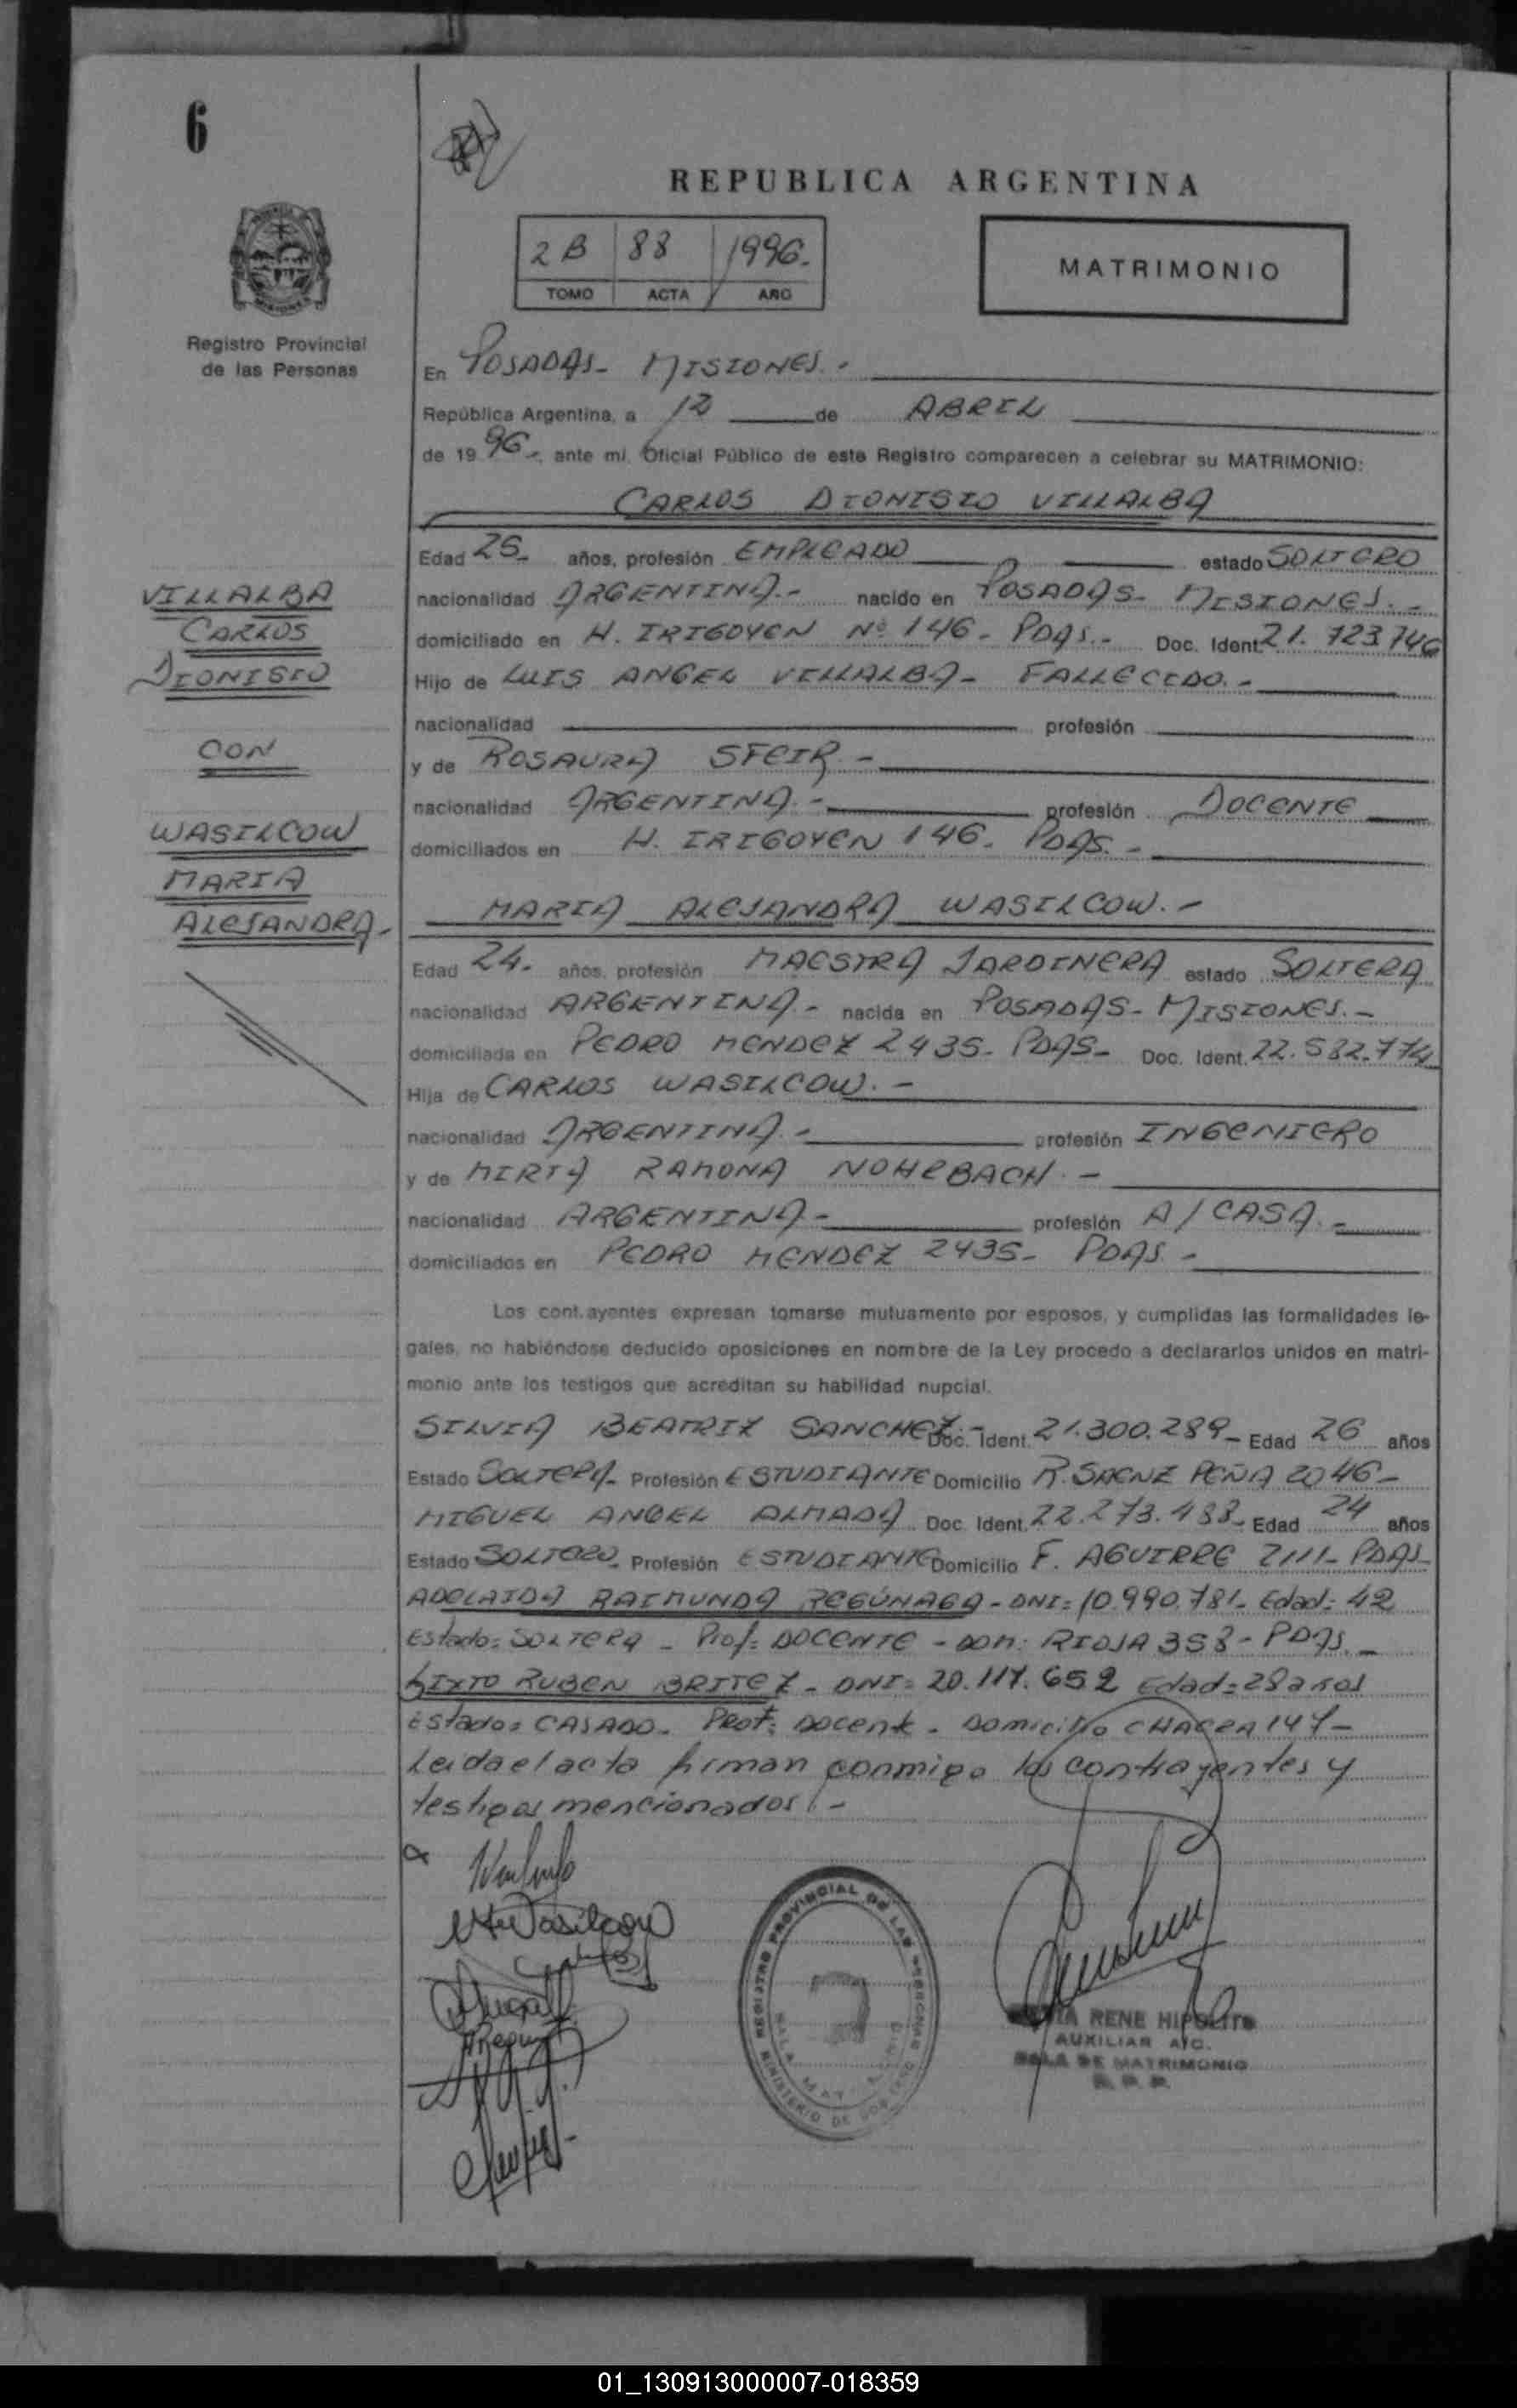 6
REPUBLICA ARGENTINA
2B 88 1996.-
TOMO ACTA AÑO
MATRIMONIO
Registro Provincial
de las Personas
En POSADAS - MISIONES.-
República Argentina, a 12 de ABRIL
de 1996-, ante mi, Oficial Público de este Registro comparecen a celebrar su MATRIMONIO:
CARLOS DIONISIO VILLALBA
Edad 25- años, profesión EMPLEADO estado SOLTERO
nacionalidad ARGENTINA.- nacido en POSADAS- MISIONES.-
domiciliado en H. IRIGOYEN Nº 146- PDAS.- Doc. Ident. 21.723.746
Hijo de LUIS ANGEL VILLALBA- FALLECIDO.-
nacionalidad profesión
y de ROSAURA SFEIR.-
nacionalidad ARGENTINA.- profesión DOCENTE
domiciliados en H. IRIGOYEN 146- PDAS.-
VILLALBA
CARLOS
DIONISIO
CON
WASILCOW
MARIA
ALEJANDRA-
MARIA ALEJANDRA WASILCOW.-
Edad 24- años, profesión MAESTRA JARDINERA estado SOLTERA
nacionalidad ARGENTINA- nacida en POSADAS- MISIONES.-
domiciliada en PEDRO MENDEZ 2435- PDAS- Doc. Ident. 22.582.774
Hija de CARLOS WASILCOW.-
nacionalidad ARGENTINA.- profesión INGENIERO
y de MIRTA RAMONA NOHEBACH.-
nacionalidad ARGENTINA- profesión A/CASA.-
domiciliados en PEDRO MENDEZ 2435- PDAS-
Los cont.ayentes expresan tomarse mutuamente por esposos, y cumplidas las formalidades le-
gales, no habiéndose deducido oposiciones en nombre de la Ley procedo a declararlos unidos en matri-
monio ante los testigos que acreditan su habilidad nupcial.
SILVIA BEATRIZ SANCHEZ.- Doc. Ident. 21.300.289- Edad 26 años
Estado SOLTERA- Profesión ESTUDIANTE Domicilio R. SAENZ PEÑA 2046-
MIGUEL ANGEL ALMADA Doc. Ident. 22.273.433- Edad 24 años
Estado SOLTERO- Profesión ESTUDIANTE Domicilio F. AGUIRRE 2111- PDAS-
ADELAIDA RAIMUNDA REGÚNAGA - DNI: 10.990.781- Edad: 42
Estado: SOLTERA - Prof: DOCENTE - DOM: RIOJA 358- PDAS.-
SIXTO RUBEN BRITEZ - DNI: 20.117.652 Edad: 28 años
Estado: CASADO- Prof: Docente - Domicilio CHACRA 147-
Leida el acta firman conmigo los contrayentes y
testigos mencionados.-
MAWasilcow
REGISTRO PROVINCIAL DE LAS PERSONAS
MINISTERIO DE GOBIERNO
SALA MATRIMONIO
RENE HIPOLITO
AUXILIAR A/C.
SALA DE MATRIMONIO
R. P. P.
01_130913000007-018359